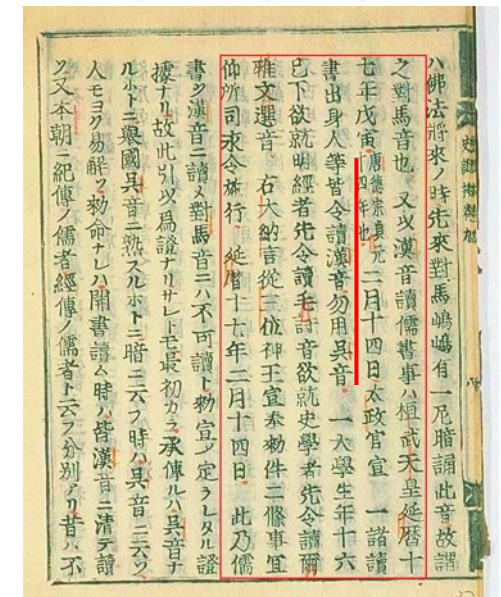 ハ佛法將來ノ時先來對馬嶋嶋有一尼暗誦此音故謂
之對馬音也 又以漢音讀儒書事ハ桓武天皇延暦十
七年戊寅唐德宗貞元十四年也二月十四日太政官宣 一諸讀
書出身人等皆令讀漢音勿用吳音 一大學生年十六
已下欲就明經者先令讀毛詩音欲就史學者先令讀爾
雅文選音 右大納言從三位神王宣奉勅件二條事宜
仰所司永令施行 延暦十七年二月十四日 此乃儒
書ヲ漢音ニ讀メ對馬音ニハ不可讀ト勅宣ノ定ラレタル證
據ナリ故此引以爲證ナリサレトモ最初カラ承傳ルハ吳音ナ
ルホトニ舉國吳音ニ熟スルホトニ暗ニ云フ時ハ吳音ニ云フ
人モヨク易解ヲ勅命ナレハ開書讀ム時ハ皆漢音ニ清テ讀
ク又本朝ニ紀傳ノ儒者經傳ノ儒者ト云フ分別アリ昔ハ不